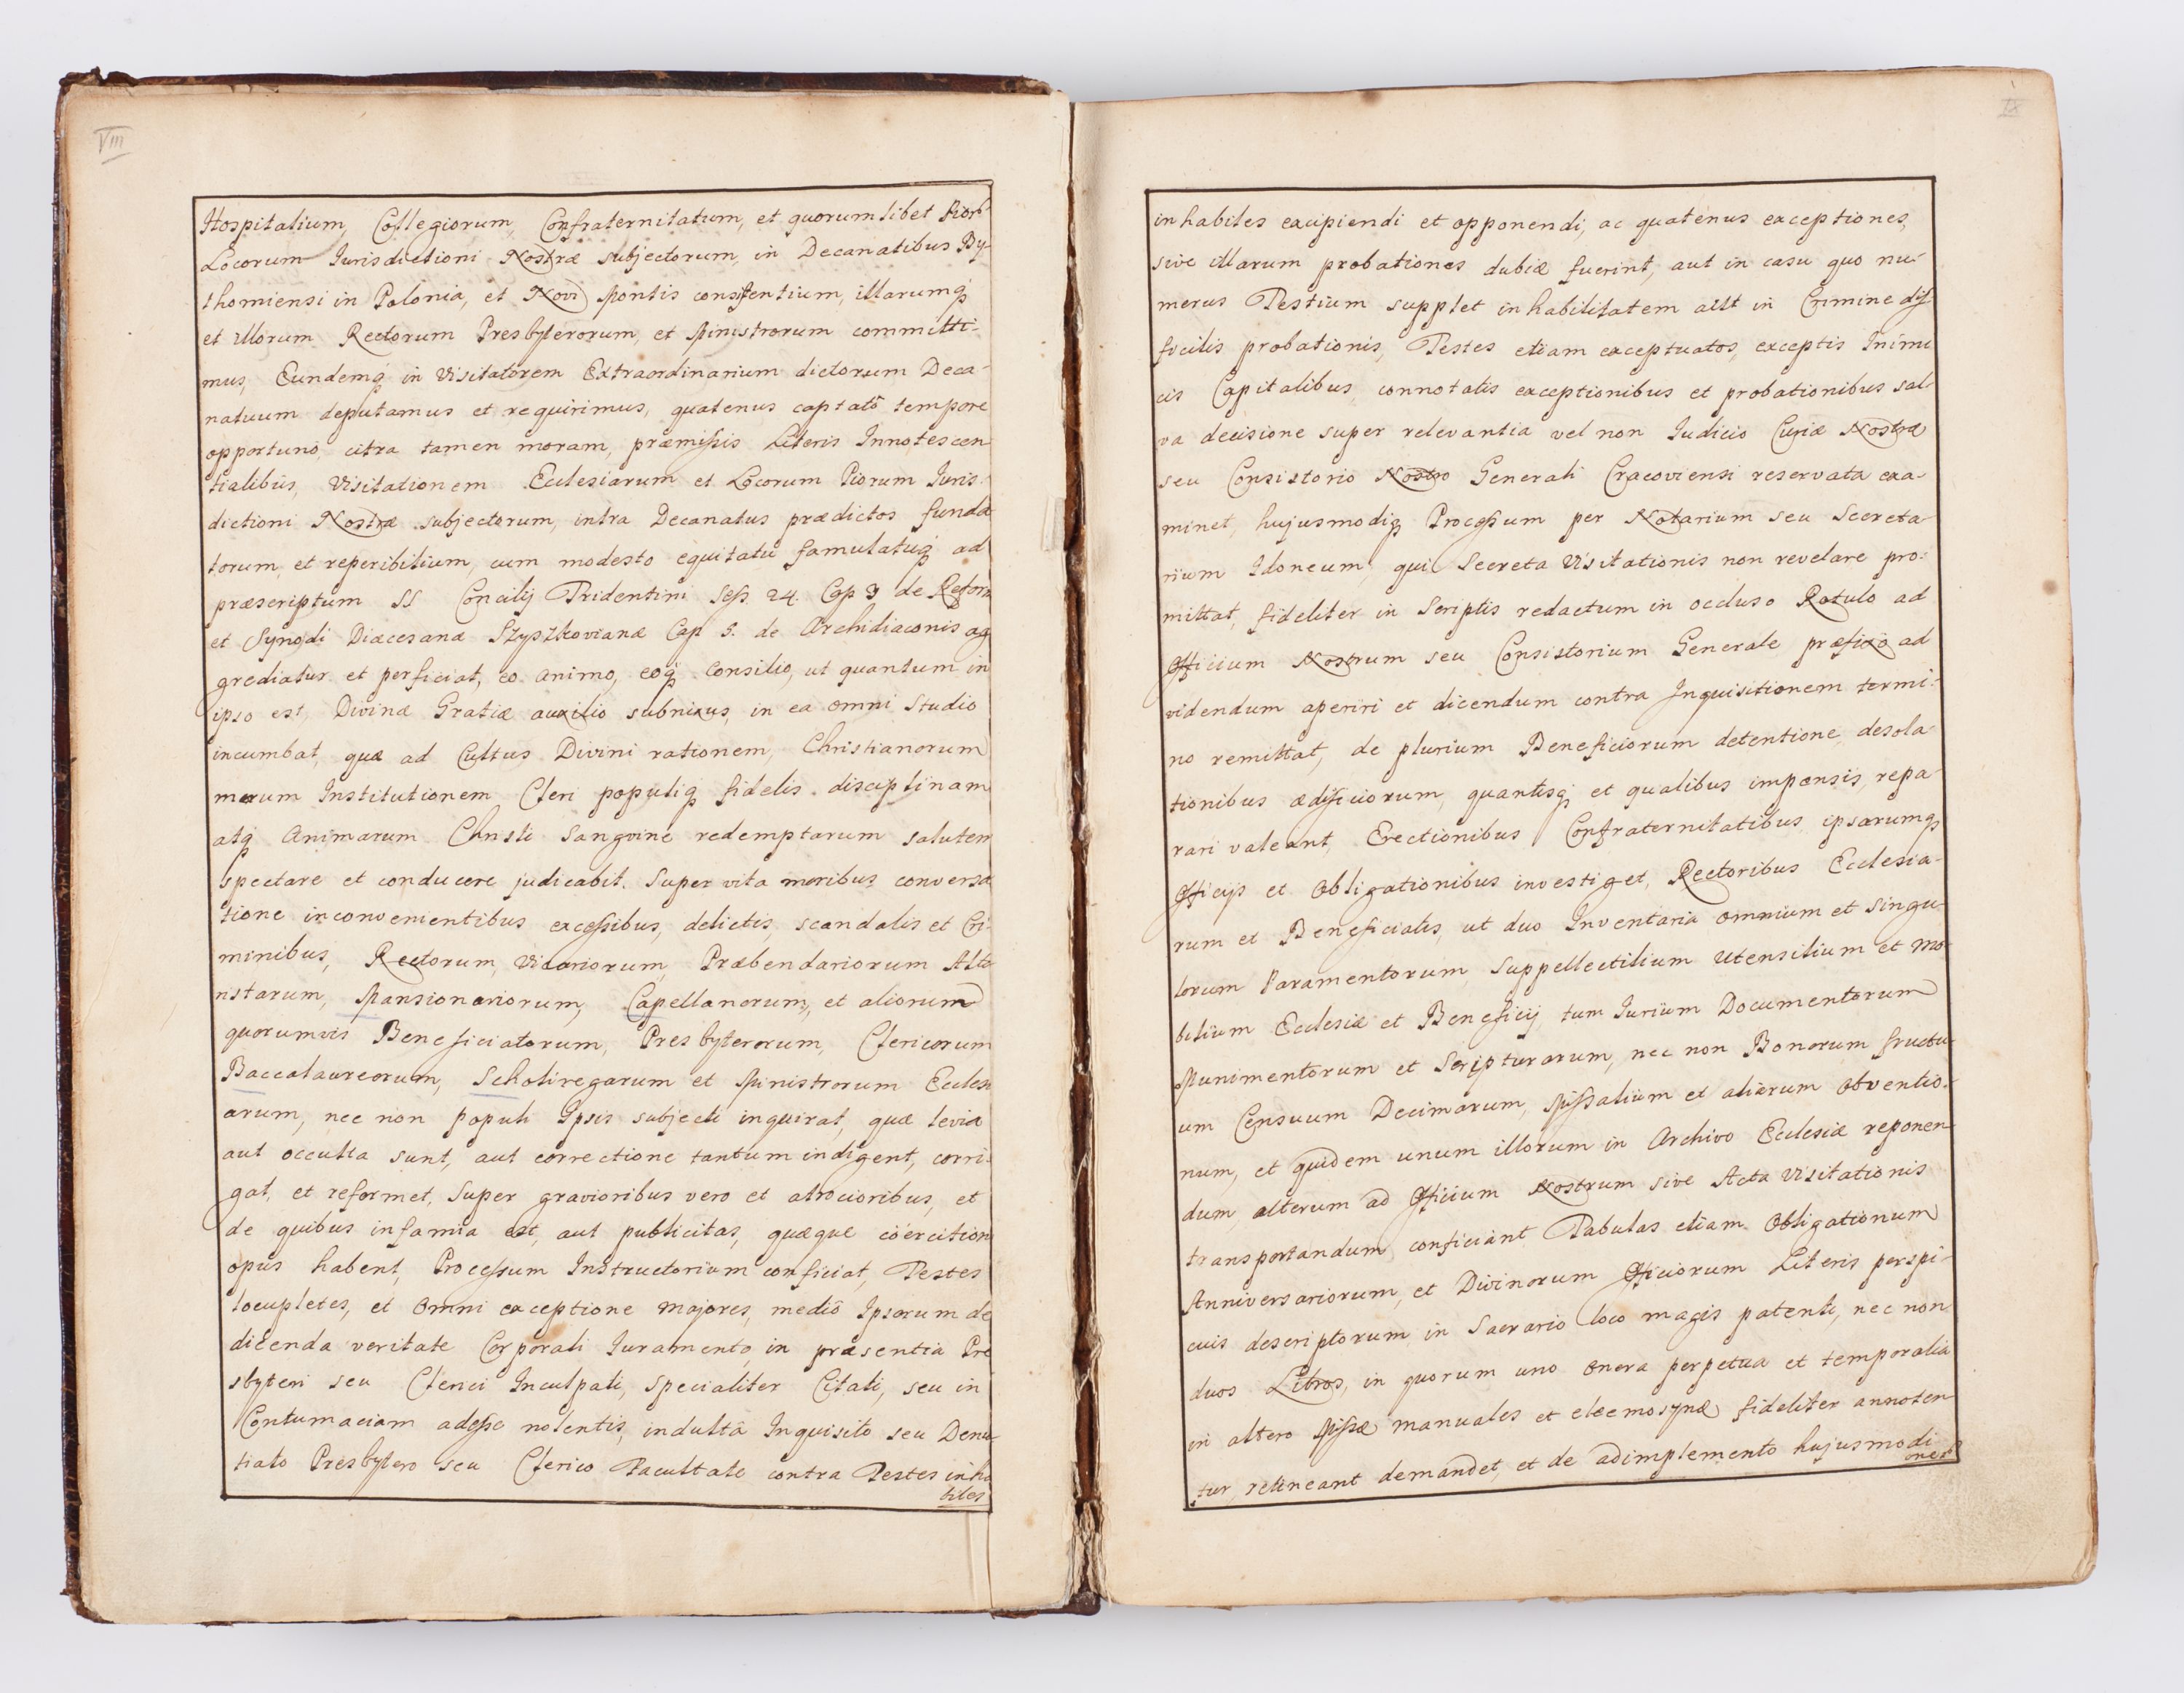 VIII
Hospitalium, Collegiorum, Confraternitatum, et quorumlibet Piorũ
Locorum Iurisdictioni Nostræ subjectorum, in Decanatibus By-
thomiensi in Polonia, et Novi Montis consistentium, illarumq́
et illorum Rectorum Presbyterorum, et Ministrorum committi-
mus, Eundemq́ in Visitatorem Extraordinarium dictorum Deca-
natuum deputamus et requirimus, quatenus captatô tempore
opportuno, citra tamen moram, præmissis Literis Innotescen
tialibus, Visitationem Ecclesiarum et Locorum Piorum Iuris-
dictioni Nostræ subjectorum, intra Decanatus prædictos funda
torum, et reperibilium, cum modesto equitatu famulatuq́ ad
præscriptum SS Concilij Tridentini Sess. 24. Cap 3 de Reform
et Synodi Diæcesanæ Szyszkovianæ Cap 5. de Archidiaconis ag
grediatur et perficiat, eo animo, eoq́ consilio, ut quantum in
ipso est, Divinæ Gratiæ auxilio subnixus, in ea omni Studio
incumbat, quæ ad Cultus Divini rationem, Christianorum
morum Institutionem Cleri populiq́ fidelis disciplinam
atq́ Animarum Christi Sangvine redemptarum salutem
spectare et conducere judicabit. Super vita moribus conversa
tione inconvenientibus excessibus, delictis, scandalis et Cri-
minibus, Rectorum, Vicariorum, Præbendariorum Alta
ristarum, Mansionariorum, Capellanorum, et aliorum
quorumvis Beneficiatorum, Presbyterorum, Clericorum
Baccalaureorum, Scholiregarum et Ministrorum Ecclesi
arum, nec non populi Ipsis subjecti inquirat, quæ levia
aut occulta sunt, aut correctione tantum indigent, corri-
gat, et reformet, Super gravioribus vero et atrocioribus, et
de quibus infamia est, aut publicitas, quæque coërcitione
opus habent, Processum Instructorium conficiat, Testes
locupletes, et omni exceptione majores, mediô Ipsorum de
dicenda veritate Corporali Iuramento, in præsentia Pre
sbyteri seu Clerici Inculpati, specialiter Citati, seu in
Contumaciam adesse nolentis, indultâ Inquisito seu Denu-
tiato Presbytero seu Clerico Facultate contra Testes inha
biles
IX
inhabiles excipiendi et opponendi, ac quatenus exceptiones,
sive illarum probationes dubiæ fuerint, aut in casu quo nu-
merus Testium supplet inhabilitatem aut in Crimine dif-
ficilis probationis, Testes etiam exceptuatos, exceptis Inimi
cis Capitalibus, connotatis exceptionibus et probationibus sal
va decisione super relevantia vel non Iudicio Curiæ Nostræ
seu Consistorio Nostro Generali Cracoviensi reservata exa-
minet, hujusmodiq́ Processum per Notarium seu Secreta-
rium Idoneum, qui Secreta Visitationis non revelare pro-
mittat, fideliter in Scriptis redactum in occluso Rotulo ad
Officium Nostrum seu Consistorium Generale præfixo ad
videndum aperiri et dicendum contra Inquisitionem termi-
no remittat, de plurium Beneficiorum detentione, desola-
tionibus ædificiorum, quantisq́ et qualibus impensis, repa-
rari valeant, Erectionibus Confraternitatibus, ipsarumq́
Officijs et Obligationibus investiget, Rectoribus Ecclesia-
rum et Beneficialis, ut duo Inventaria omnium et singu-
lorum Paramentorum, Suppellectilium Utensilium et mo-
bilium Ecclesiæ et Beneficij, tum Iurium Documentorum
Munimentorum et Scripturarum, nec non Bonorum fructu-
um Censuum Decimarum, Missalium et aliarum Obventio-
num, et quidem unum illorum in Archivo Ecclesiæ reponen-
dum, alterum ad Officium Nostrum sive Acta Visitationis
transportandum, conficiant, Tabulas etiam Obligationum
Anniversariorum, et Divinorum Officiorum Literis perspi-
cuis descriptorum in Sacrario loco magis patenti, nec non
duos Libros, in quorum uno onera perpetua et temporalia
in altero Missæ manuales et eleemosynæ fideliter annoten
tur, retineant demandet, et de adimplemento hujusmodi
oner